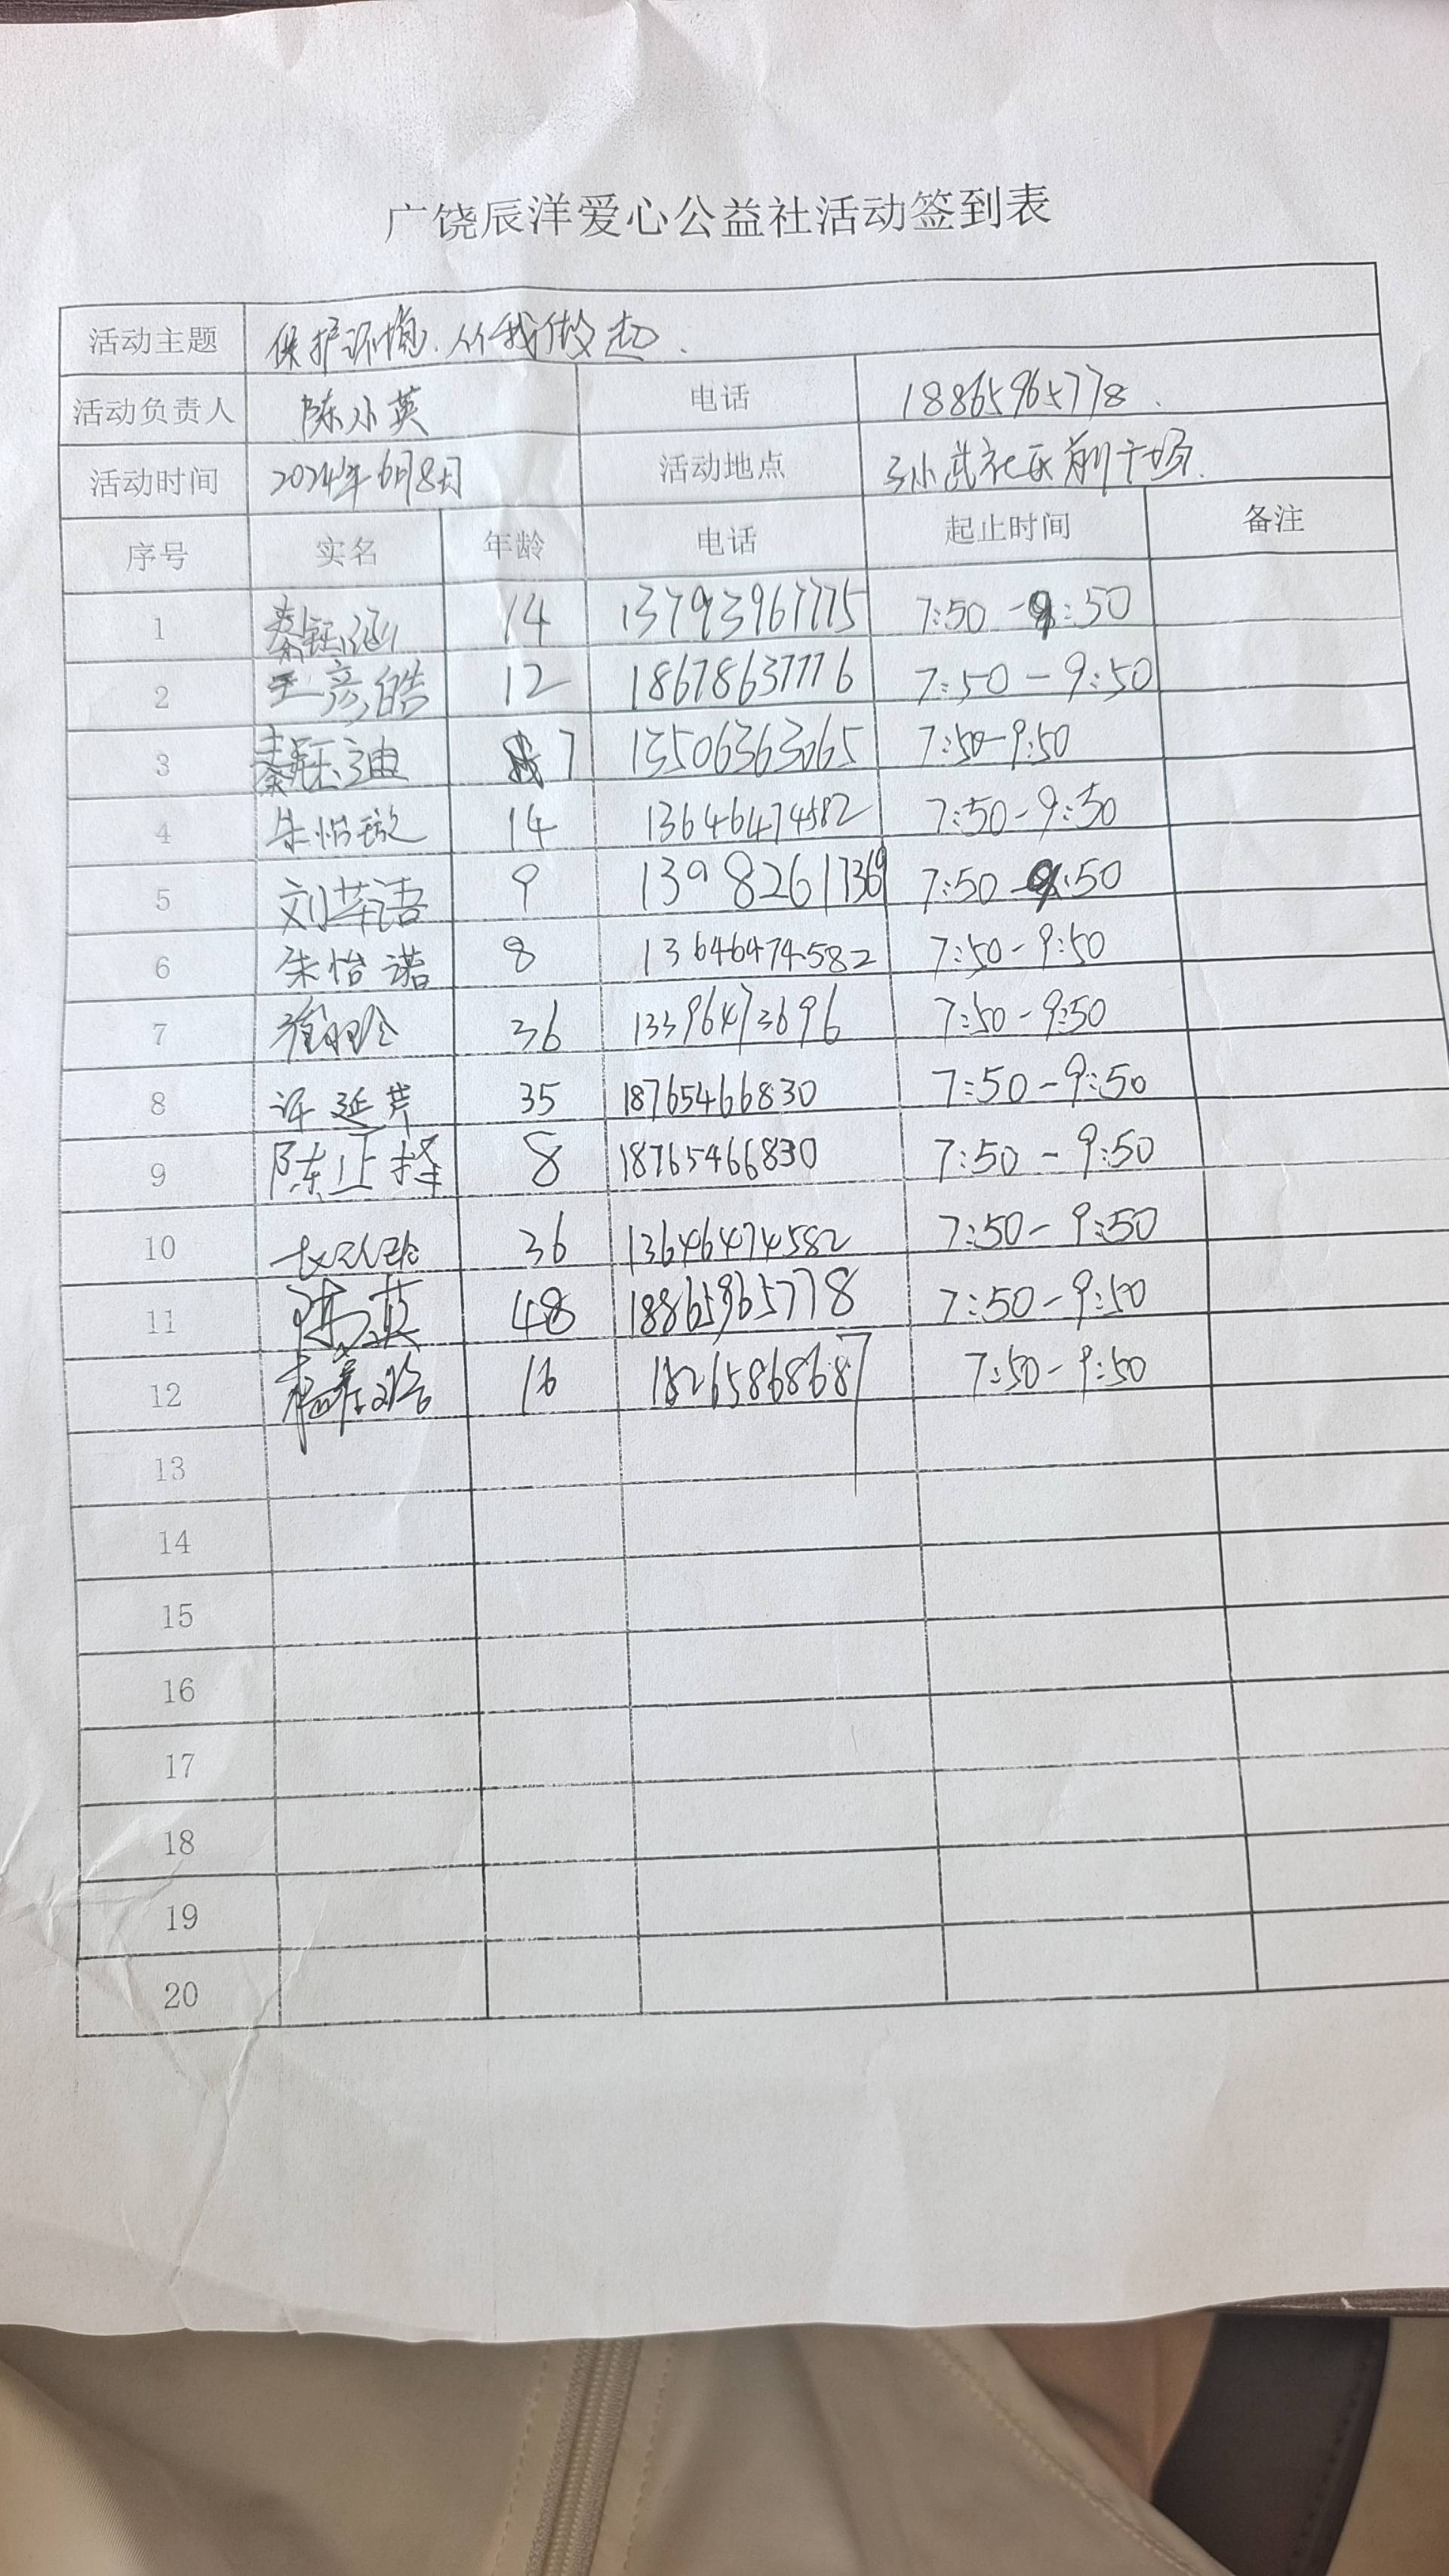 广饶辰洋爱心公益社活动签到表
活动主题 保护环境.从我做起.
活动负责人 陈小英 电话 18865965778.
活动时间 2024年6月8日 活动地点 孙武社区前广场.
序号 实名 年龄 电话 起止时间 备注
1 秦钰涵 14 13793967775 7:50-9:50
2 王彦皓 12 18678637776 7:50-9:50
3 秦钰迪 7 13506363065 7:50-9:50
4 朱怡璇 14 13646474582 7:50-9:50
5 刘芊语 9 13982617369 7:50-9:50
6 朱怡诺 8 13646474582 7:50-9:50
7 36 13396473696 7:50-9:50
8 许延芹 35 18765466830 7:50-9:50
9 陈正择 8 18765466830 7:50-9:50
10 36 13646474582 7:50-9:50
11 陈小英 48 18865965778 7:50-9:50
12 16 18265868687 7:50-9:50
13
14
15
16
17
18
19
20